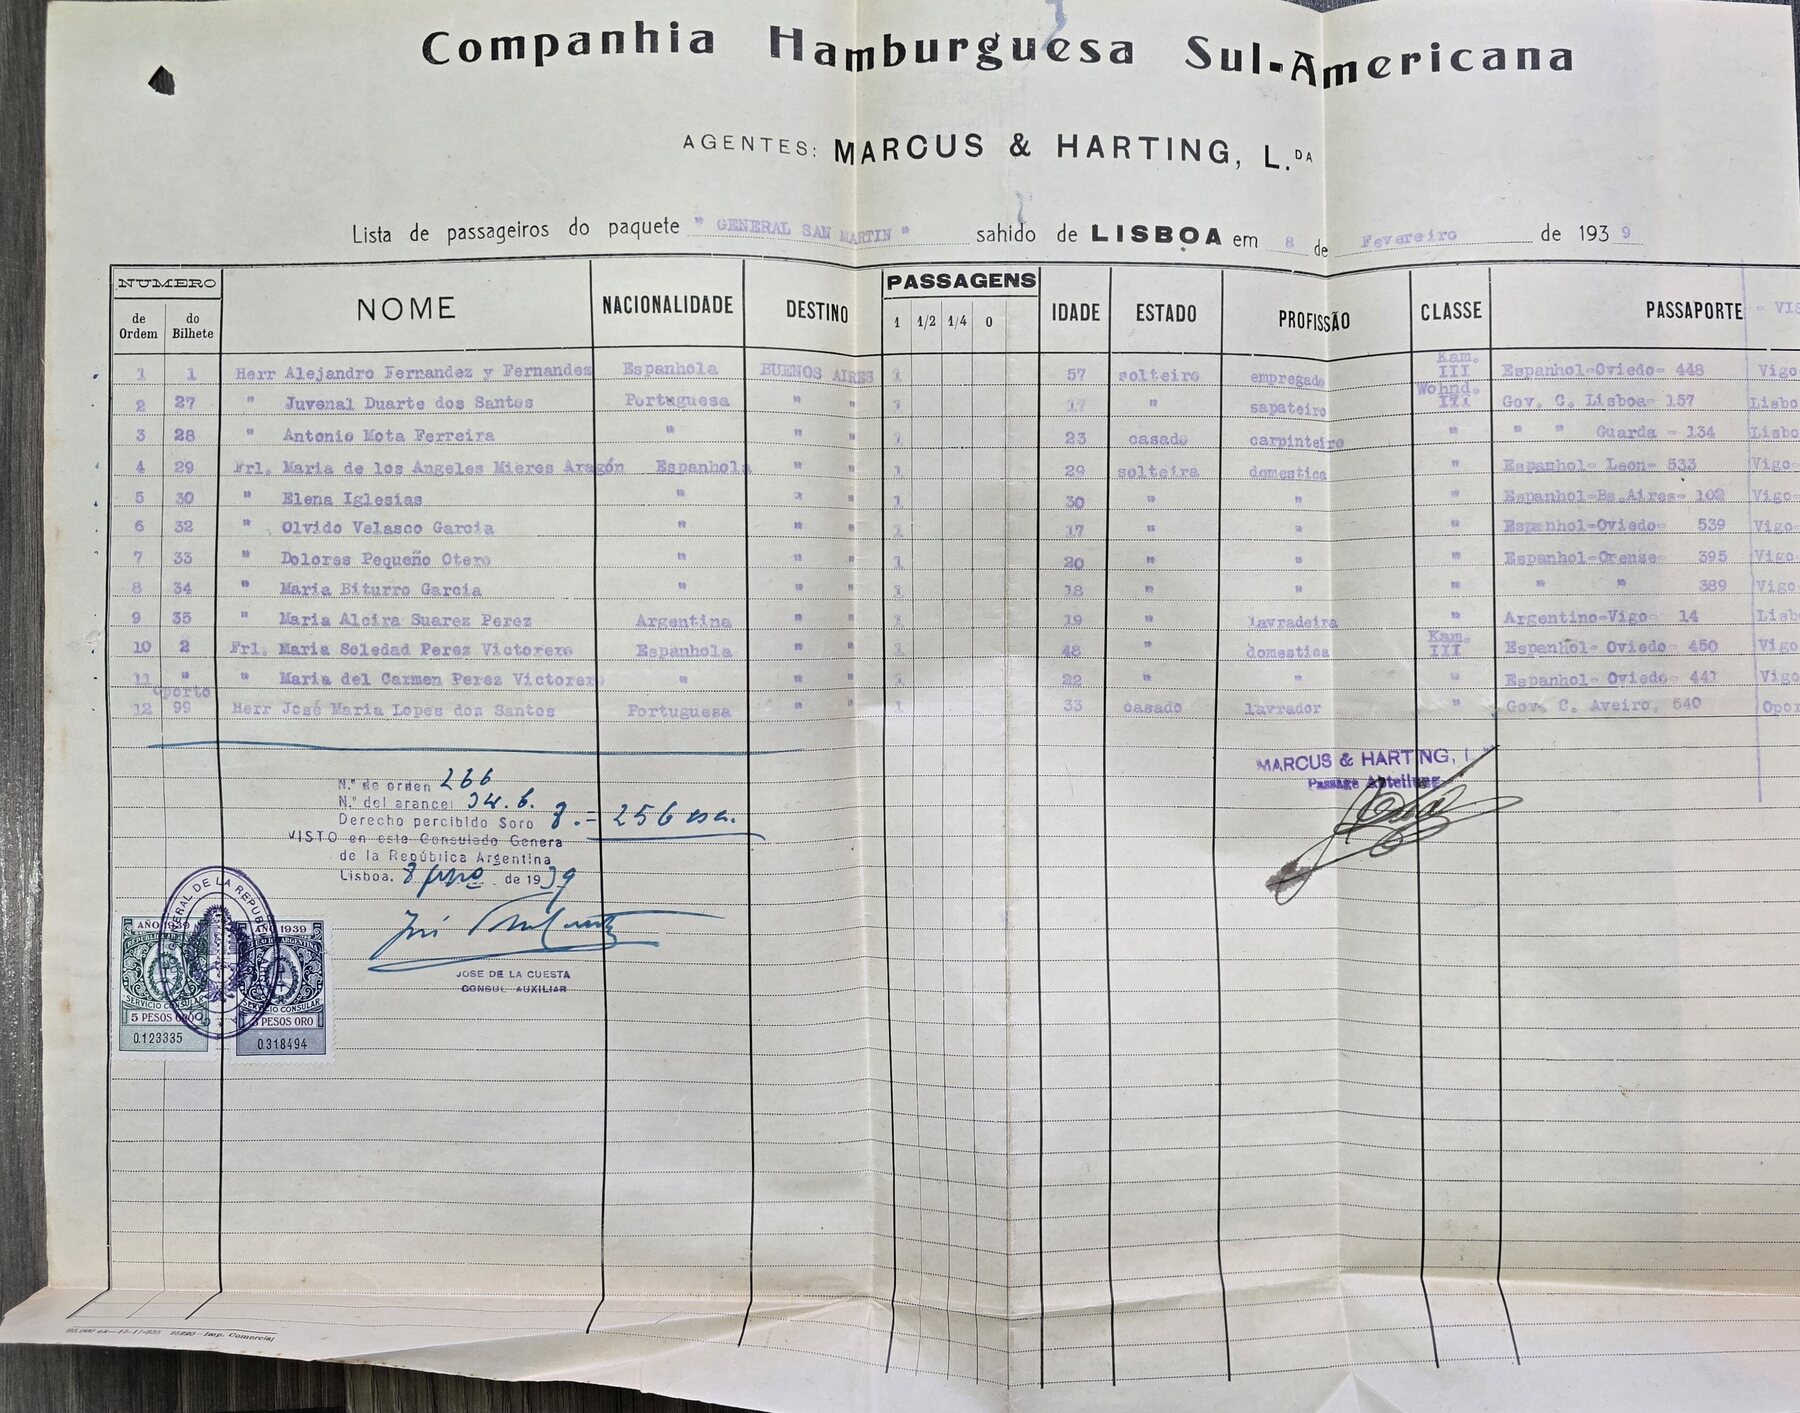 Companhia Hamburguesa Sul-Americana
AGENTES: MARCUS & HARTING, L.DA
Lista de passageiros do paquete "GENERAL SAN MARTIN" sahido de LISBOA em 8 de Fevereiro de 1939
NUMERO NOME NACIONALIDADE DESTINO PASSAGENS IDADE ESTADO PROFISSÃO CLASSE PASSAPORTE - VIS
de Ordem do Bilhete 1 1/2 1/4 0
1 1 Herr Alejandro Fernandez y Fernandez Espanhola BUENOS AIRES 1 57 solteiro empregado Kam. III Espanhol-Oviedo- 448 Vigo
2 27 " Juvenal Duarte dos Santos Portuguesa " " 1 17 " sapateiro Wohnd. III Gov. C. Lisboa- 157 Lisbo
3 28 " Antonio Mota Ferreira " " " 1 23 casado carpinteiro " " " Guarda - 134 Lisbo
4 29 Frl. Maria de los Angeles Mieres Aragón Espanhola " " 1 29 solteira domestica " Espanhol- Leon- 533 Vigo-
5 30 " Elena Iglesias " " " 1 30 " " " Espanhol-Bs.Aires- 102 Vigo-
6 32 " Olvido Velasco Garcia " " " 1 17 " " " Espanhol-Oviedo- 539 Vigo-
7 33 " Dolores Pequeño Otero " " " 1 20 " " " Espanhol-Orense- 395 Vigo-
8 34 " Maria Biturro Garcia " " " 1 18 " " " " " 389 Vigo
9 35 " Maria Alcira Suarez Perez Argentina " " 1 19 " lavradeira " Argentino-Vigo- 14 Lisb
10 2 Frl. Maria Soledad Perez Victorero Espanhola " " 1 48 " domestica Kam. III Espanhol- Oviedo- 450 Vigo
11 " " Maria del Carmen Perez Victorero " " " 1 22 " " " Espanhol- Oviedo- 441 Vigo
Oporto
12 99 Herr José Maria Lopes dos Santos Portuguesa " " 1 33 casado lavrador " Gov. C. Aveiro. 540 Opor
MARCUS & HARTING, L
Passage Abteilung
N.º de orden 266
N.º del arancel 34. 6.
Derecho percibido $oro 8.= 256 esc.
VISTO en este Consulado Genera
de la República Argentina
Lisboa. 8 de 1939
JOSE DE LA CUESTA
CONSUL AUXILIAR
AÑO 1939 AÑO 1939
SERVICIO CONSULAR
5 PESOS ORO 3 PESOS ORO
0.123335 0.318494
Imp. Comercial